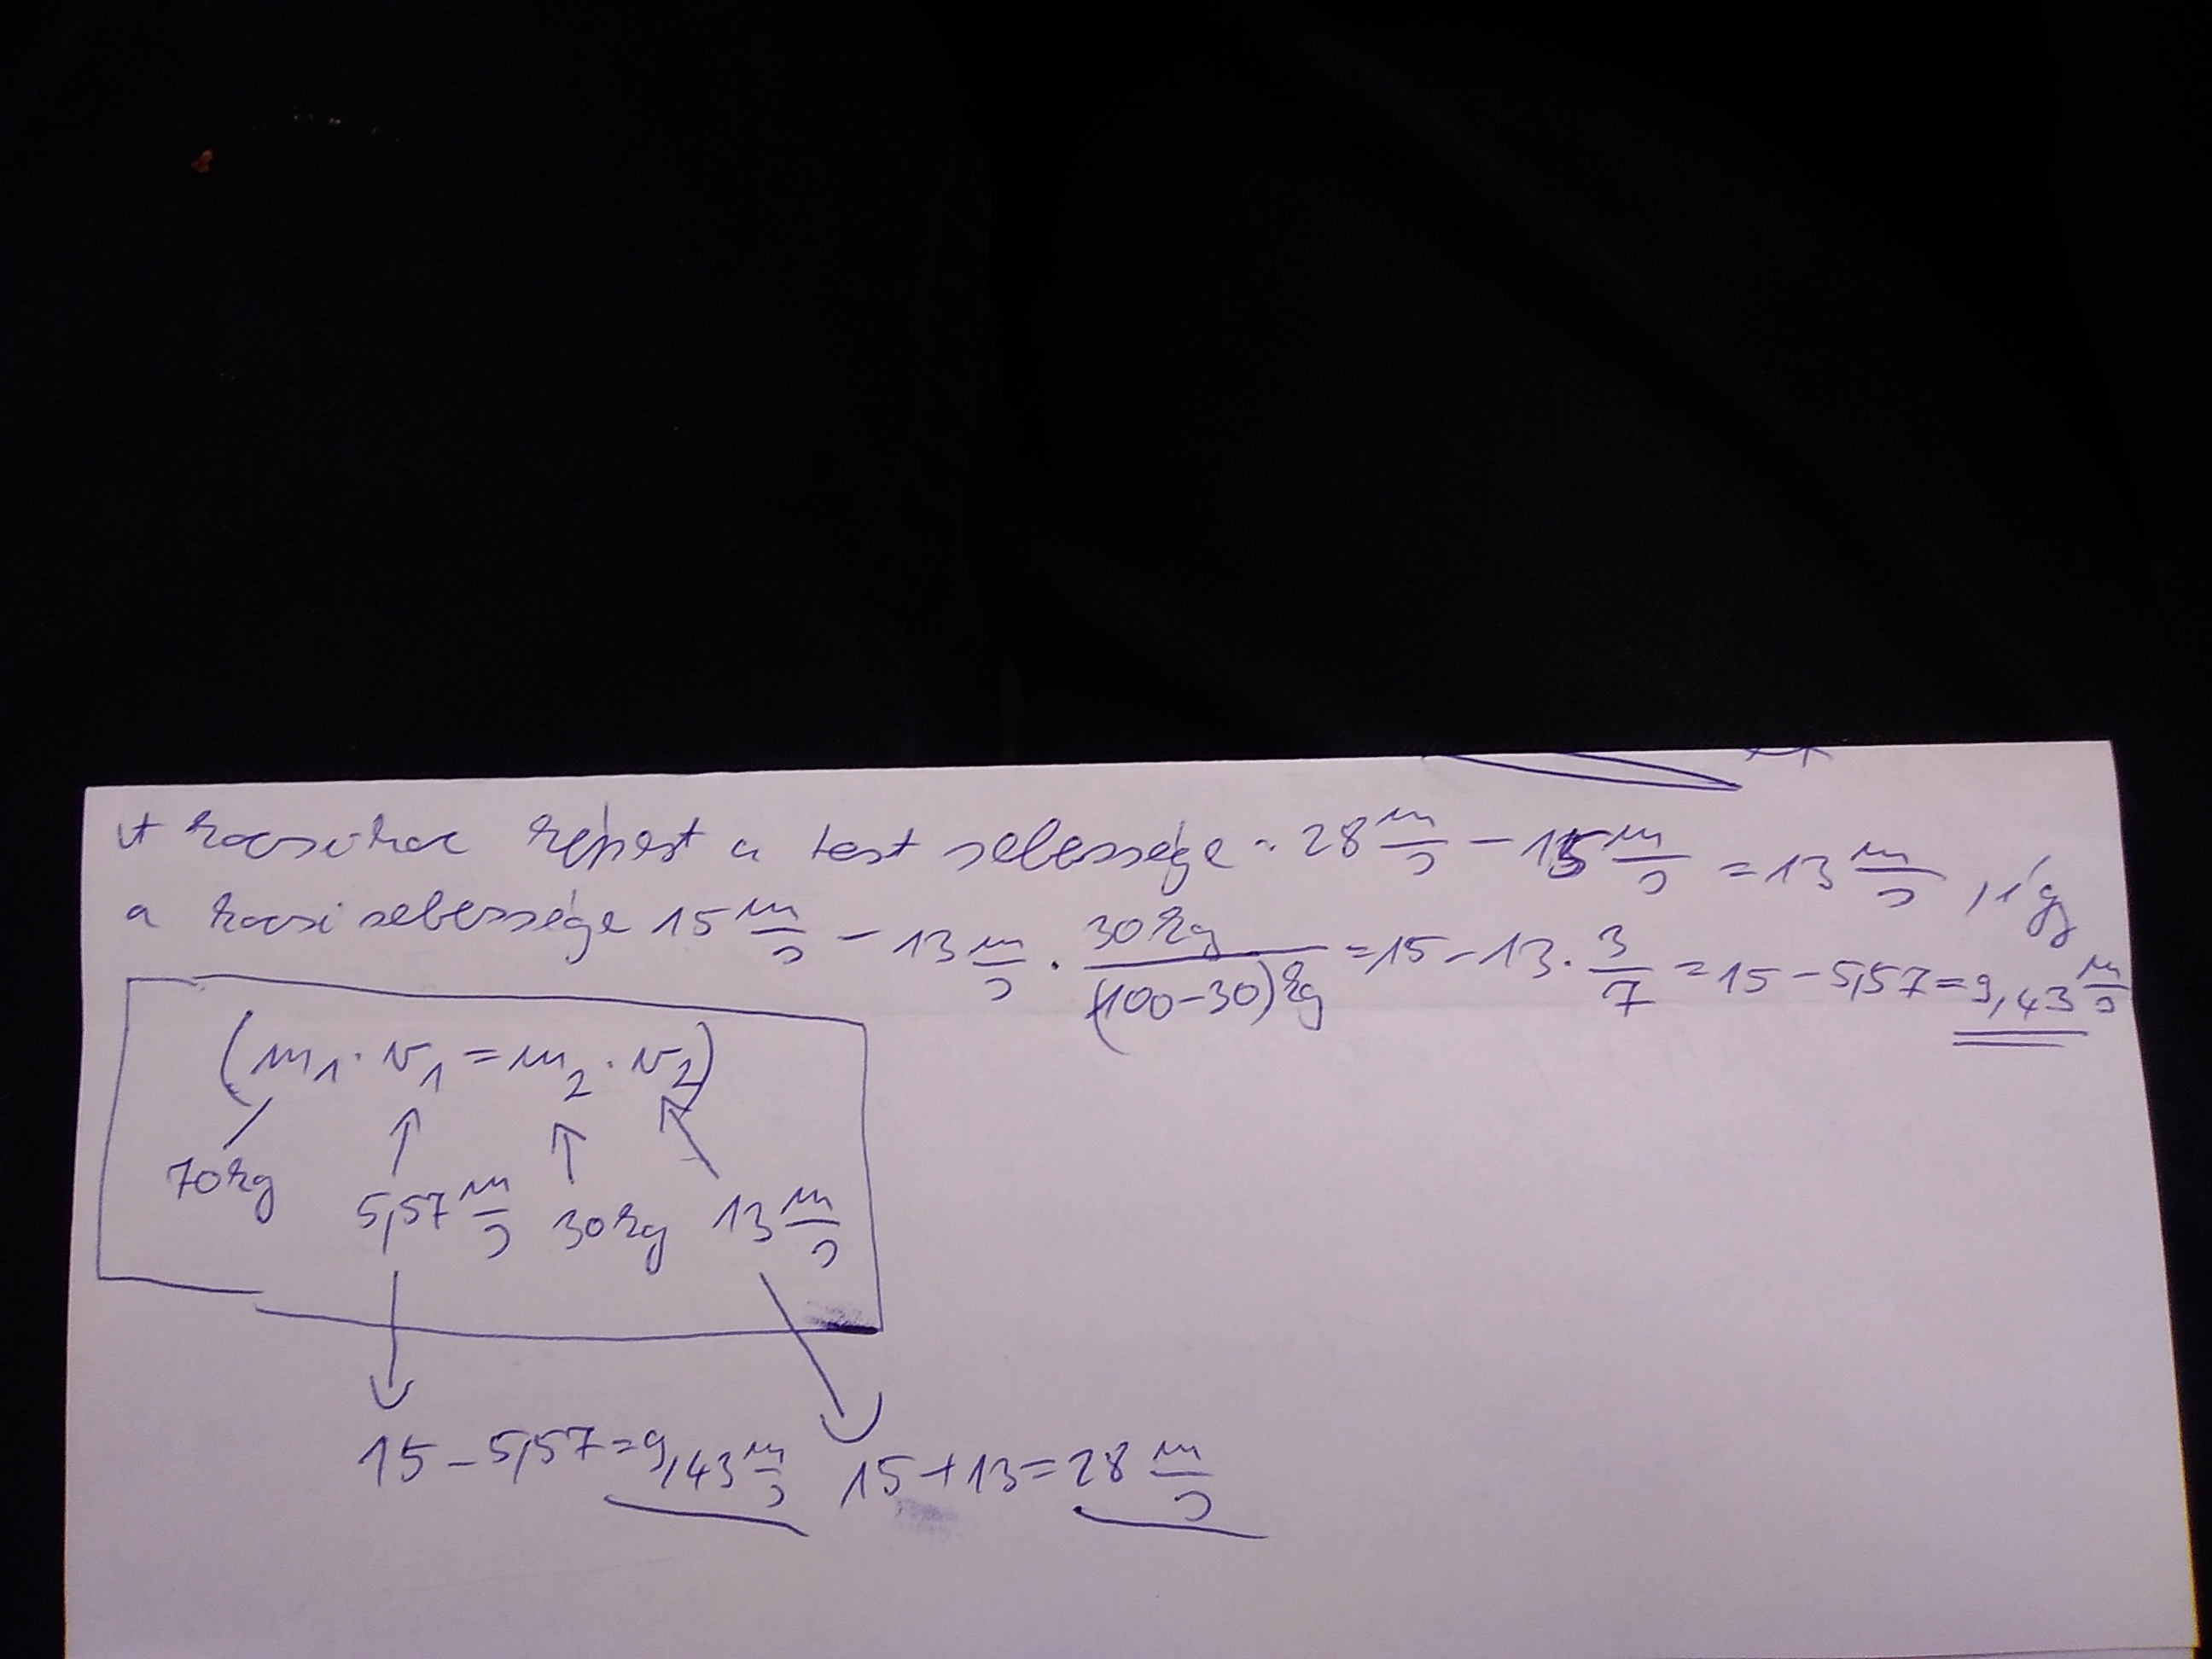 A kocsihoz képest a test sebessége: 28 m/s - 15 m/s = 13 m/s, így
a kocsi sebessége 15 m/s - 13 m/s · 30 kg/(100-30) kg = 15 - 13 · 3/7 = 15 - 5,57 = 9,43 m/s
(m₁ · v₁ = m₂ · v₂)
70 kg 5,57 m/s 30 kg 13 m/s
15 - 5,57 = 9,43 m/s 15 + 13 = 28 m/s